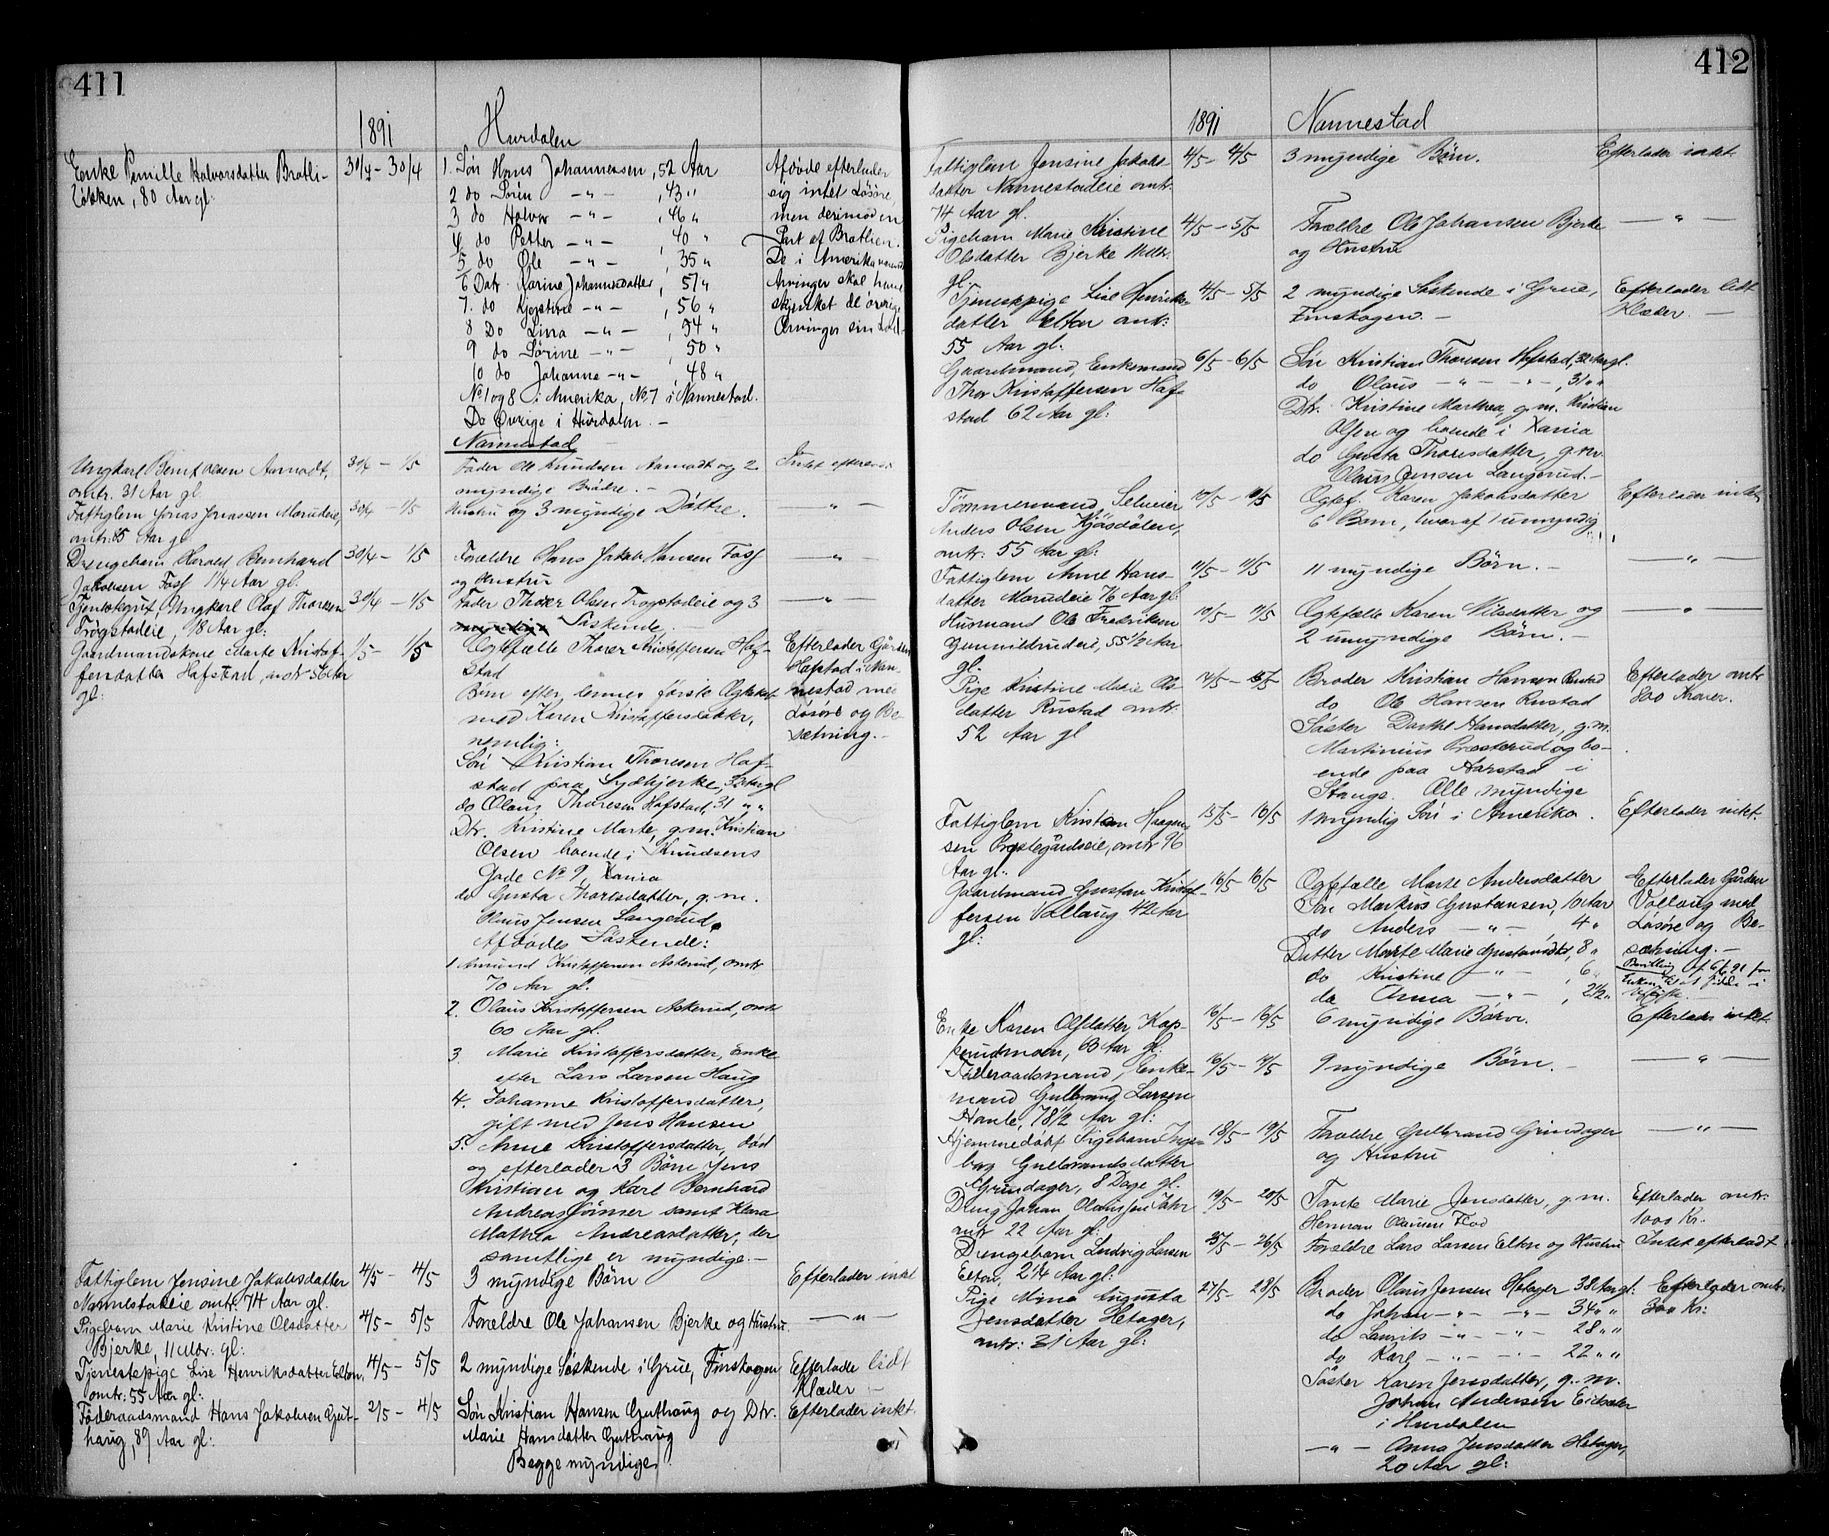 411
1891
Hurdalen
Enke Pernille Halvorsdatter Bratli-
løkken, 80 Aar gl:
30/4 - 30/4
1. Søn Hans Johannessen, 52 Aar
2 do Søren -"- , 43 "
3 do Halvor -"- , 46 "
4 do Petter -"- , 40 "
5 do Ole -"- , 35 "
6 Datr. Karine Johannesdatter, 57 "
7. do Kjerstine -"- , 56 "
8 Do Lina -"- , 34 "
9 do Sørine -"- , 50 "
10 do Johanne -"- , 48 "
No 1 og 8 i Amerika, No 7 i Nannestad.
De Øvrige i Hurdalen. -
Afdøde efterlader
sig intet Løsøre,
men derimod en
Part af Bratlien.
De i Amerika værende
Arvinger skal have
skjænket de øvrige
Arvinger sin Lod -
Nannestad
Ungkarl Bernt Olsen Aamodt,
omtr. 31 Aar gl.
30/4 - 1/5
Fader Ole Knudsen Aamodt og 2
myndige Brødre. -
Intet efterladt
Fattiglem Jonas Jonassen Marudeie,
Aar gl
30/4 - 1/5
Hustru og 3 myndige Døttre.
- " -
Drengebarn Harald Bernhard
Jakobsen Foss 1 1/4 Aar gl.
30/4 - 1/5
Forældre Hans Jakob Hansen Foss
og Hustru
- " -
Tjenestegut, Ungkarl Olaf Thoresen
Trøgstadeie, 18 Aar gl:
30/4 - 1/5
Fader Thorer Olsen Trøgstadeie og 3
myndige Søskende. -
- " -
Gaardmandskone Marte Kristof-
fersdatter Hafstad, omtr 56 Aar
gl:
1/5 - 1/5
Ægtefælle Thorer Kristoffersen Haf-
stad
Børn efter dennes første Ægtesk.
med Karen Kristoffersdatter,
nemlig:
Søn Kristian Thoresen Haf-
stad paa Sydbjerke, 32 Aar gl
do Olaus Thoresen Hafstad, 31 " "
Dtr. Kristine Marte, g. m. Kristian
Olsen boende i Knudsens
Gade No 9, Xania
do Gusta Thorsdatter, g. m.
Olaus Jensen Langerud.
Afdødes Søskende:
1 Amund Kristoffersen Askerud, omtr
70 Aar gl.
2. Olaus Kristoffersen Askerud, omtr
60 Aar gl.
3. Marie Kristoffersdatter, Enke
efter Lars Larsen Haug
4. Johanne Kristoffersdatter,
gift med Jens Hansen
5. Anne Kristoffersdatter, død
og efterlader 3 Børn Jens
Kristian og Karl Bernhard
Andreassønner samt Klara
Mathea Andreasdatter, der
samtlige er myndige. -
Efterlader Gården
Hafstad i Nan-
nestad med
Løsøre og Be-
sætning. -
Fattiglem Jensine Jakobsdatter
Nannestadeie omtr. 74 Aar gl.
4/5 - 4/5
3 myndige Børn
Efterlader intet
Pigebarn Marie Kristine Olsdatter
Bjerke, 11 Mdr. gl:
4/5 - 5/5
Forældre Ole Johansen Bjerke og Hustru.
- " -
Tjenestepige Lise Henriksdatter Elton,
omtr. 55 Aar gl:
4/5 - 5/5
2 myndige Søskende i Grue, Finskogen
Efterlader lidt
Klæder -
Føderaadsmand Hans Jakobsen Gut-
haug, 89 Aar gl:
2/5 - 4/5
Søn Kristian Hansen Guthaug og Dtr.
Marie Hansdatter Guthaug
Begge myndige.
Efterlader intet
412
1891
Nannestad
Fattiglem Jensine Jakobs
datter Nannestadeie omtr.
74 Aar gl.
4/5 - 4/5
3 myndige Børn.
Efterlader intet.
Pigebarn Marie Kristine
Olsdatter Bjerke 11 Mdr.
gl
4/5 - 5/5
Forældre Ole Johansen Bjerke
og Hustru
- " -
Tjenestepige Lise Henriks
datter Elton omtr:
55 Aar gl.
4/5 - 5/5
2 myndige Søskende i Grue,
Finskogen. -
Efterlader lidt
Klæder. -
Gaardmand, Enkemand
Thor Kristoffersen Haf-
stad 62 Aar gl:
6/5 - 6/5
Søn Kristian Thoresen Hafstad, 32 Aar gl.
do Olaus -"- -"-, 31 " "
Dtr. Kristine Marthea, g. m. Kristian
Olsen og boende i Xania
do Gusta Thoresdatter, g.
Olaus Jensen Langerud. -
Tømmermand, Selveier
Anders Olsen Kjøsdølen,
omtr: 55 Aar gl:
10/5 - 10/5
Ægtef. Karen Jakobsdatter
6 Børn, hvoraf 1 umyndig
Efterlader intet
Fattiglem Anne Hans-
datter Marudeie 76 Aar gl:
11/5 - 11/5
11 myndige Børn. -
- " -
Husmand Ole Fredriksen
Gunnildrudeie, 55 1/2 Aar
gl.
10/5 - 11/5
Ægtefælle Karen Nilsdatter og
2 umyndige Børn. -
- " -
Pige Kristine Marie
datter Rustad omtr.
52 Aar gl
Broder Kristian Hansen Rustad
do Ole Hansen Rustad
Søster Dorthe Hansdatter, g. m.
Martinius Præsterud og bo-
ende paa Aarstad i
Stange. Alle myndige
Efterlader omtr
800 Kroner.
Fattiglem Kristian Haagen-
sen Prestegårdseie, omtr 96
Aar gl.
15/5 - 16/5
1 myndig Søn i Amerika.
Efterlader intet.
Gaardmand Gustav Kristof-
fersen Vollaug 42 Aar
gl:
16/5 - 16/5
Ægtefælle Marte Andersdatter
Søn Markus Gustavsen, 10 Aar
do Anders -"-, 4 "
Datter Marte Marie Gustavsdtr, 8 "
do Kristine -"- 6 "
do Anna -"-, 2 1/2 "
Efterlader Gården
Vollaug med
Løsøre og Be-
sætning. -
Bevilling af 6/6 91 for
Enken til at sidde i
Enke Karen Olsdatter, Kop-
perudmoen, 63 Aar gl:
16/5 - 16/5
6 myndige Børn.
Efterlader intet.
Føderaadsmand, Enke-
mand Gulbrand Larsen
78 1/2 Aar gl:
9 myndige Børn. -
- " -
Hjemmedøbt Pigebarn Inge-
borg Gulbrandsdatter
Grindager, 8 Dage gl.
18/5 - 19/5
Forældre Gulbrand Grindager
og Hustru
- " -
Dreng Johan
omtr 22 Aar gl:
19/5 - 20/5
Tante Marie Jensdatter, g. m.
Herman Olaussen
Efterlader omtr:
1000 Kr.
Drengebarn Ludvig Larsen
Elton, 2 1/4 Aar gl:
Forældre Lars Larsen Elton og Hustru
Intet efterladt
Pige Mina Augusta
Jensdatter Hetager,
omtr: 31 Aar gl:
27/5 - 28/5
Broder Olaus Jensen Hetager 38 Aar gl:
do Johan -"- -"- 34 " "
do Laurits -"- -"- 28 " "
do Karl -"- -"- 22 " "
Søster Karen Jensdatter, g. m.
Johan Andersen
i Hurdalen
-"- Anna Jensdatter Hetager,
20 Aar gl:
Efterlader omtr.
300 Kr: